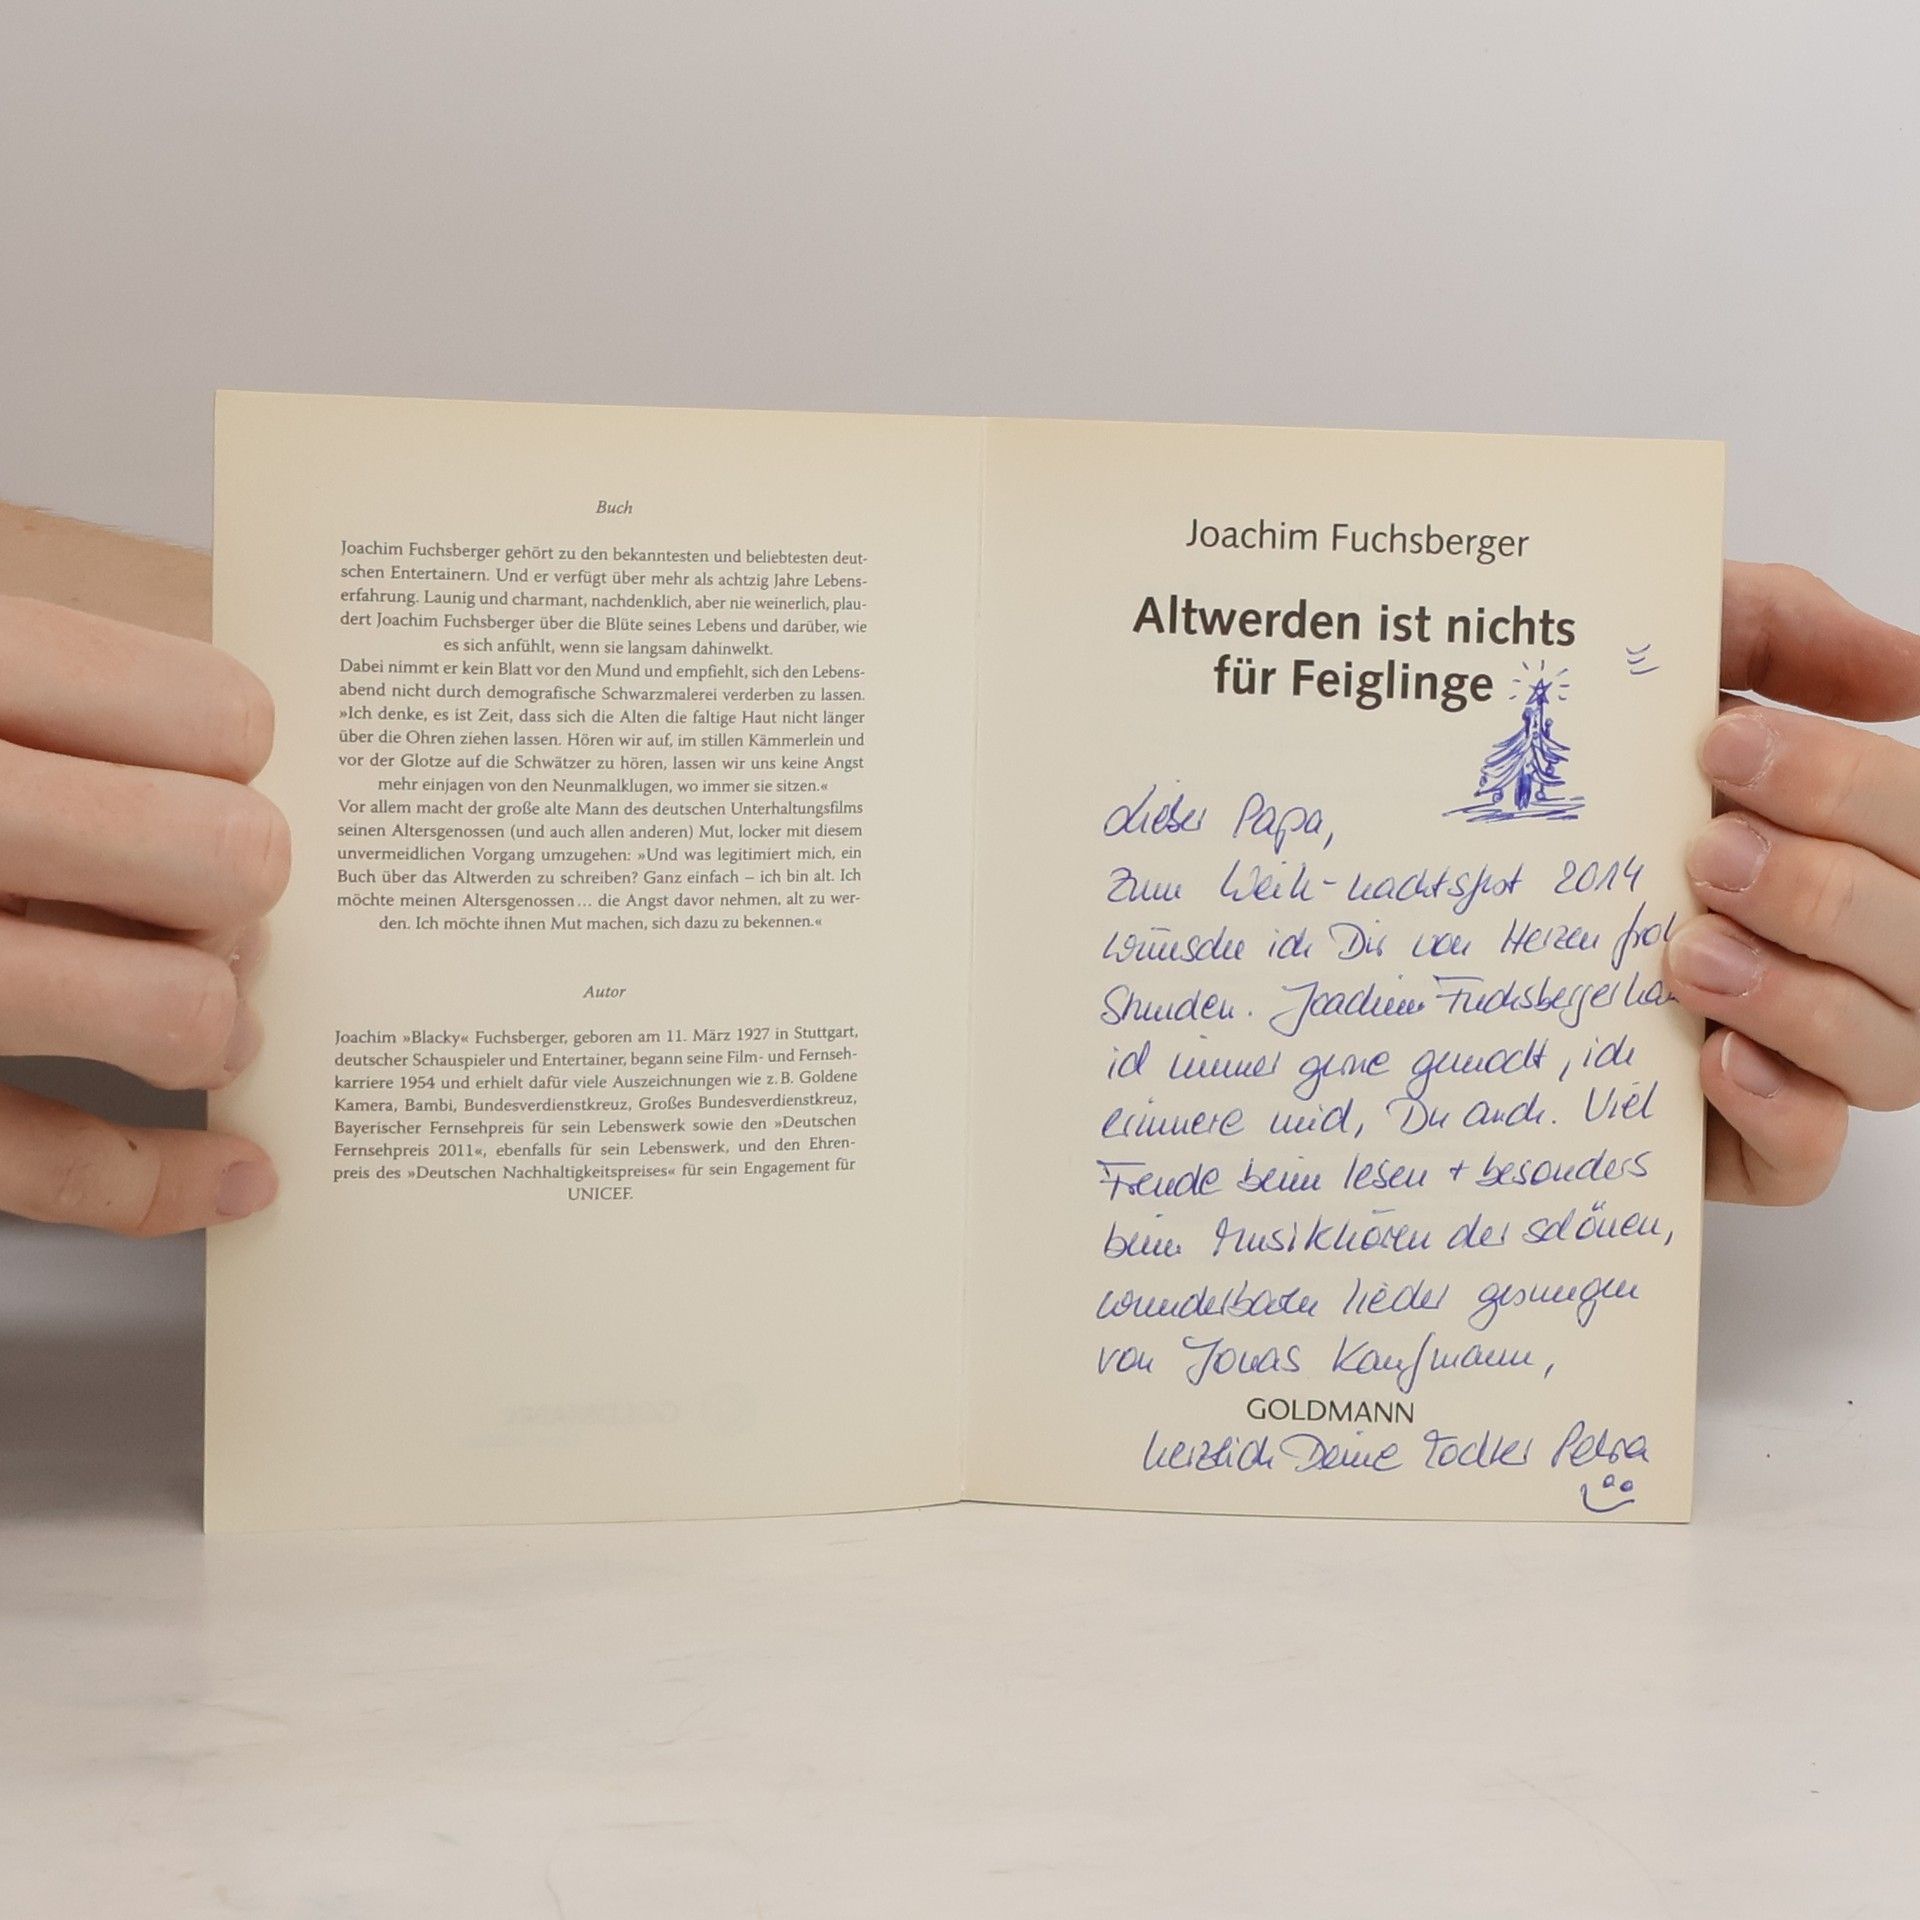 Buch
Joachim Fuchsberger gehört zu den bekanntesten und beliebtesten deut-
schen Entertainern. Und er verfügt über mehr als achtzig Jahre Lebens-
erfahrung. Launig und charmant, nachdenklich, aber nie weinerlich, plau-
dert Joachim Fuchsberger über die Blüte seines Lebens und darüber, wie
es sich anfühlt, wenn sie langsam dahinwelkt.
Dabei nimmt er kein Blatt vor den Mund und empfiehlt, sich den Lebens-
abend nicht durch demografische Schwarzmalerei verderben zu lassen.
»Ich denke, es ist Zeit, dass sich die Alten die faltige Haut nicht länger
über die Ohren ziehen lassen. Hören wir auf, im stillen Kämmerlein und
vor der Glotze auf die Schwätzer zu hören, lassen wir uns keine Angst
mehr einjagen von den Neunmalklugen, wo immer sie sitzen.«
Vor allem macht der große alte Mann des deutschen Unterhaltungsfilms
seinen Altersgenossen (und auch allen anderen) Mut, locker mit diesem
unvermeidlichen Vorgang umzugehen: »Und was legitimiert mich, ein
Buch über das Altwerden zu schreiben? Ganz einfach – ich bin alt. Ich
möchte meinen Altersgenossen… die Angst davor nehmen, alt zu wer-
den. Ich möchte ihnen Mut machen, sich dazu zu bekennen.«
Autor
Joachim »Blacky« Fuchsberger, geboren am 11. März 1927 in Stuttgart,
deutscher Schauspieler und Entertainer, begann seine Film- und Fernseh-
karriere 1954 und erhielt dafür viele Auszeichnungen wie z. B. Goldene
Kamera, Bambi, Bundesverdienstkreuz, Großes Bundesverdienstkreuz,
Bayerischer Fernsehpreis für sein Lebenswerk sowie den »Deutschen
Fernsehpreis 2011«, ebenfalls für sein Lebenswerk, und den Ehren-
preis des »Deutschen Nachhaltigkeitspreises« für sein Engagement für
UNICEF.
Joachim Fuchsberger
Altwerden ist nichts
für Feiglinge
Lieber Papa,
zum Weih-nachtsfest 2014
wünsche ich Dir von Herzen
Stunden. Joachim Fuchsberger
ich immer gerne gemocht, ich
erinnere mich, Du auch. Viel
Freude beim lesen + besonders
beim Musikhören der schönen,
wunderbaren lieder gesungen
von Jonas Kaufmann,
GOLDMANN
herzlich Deine Tochter Petra